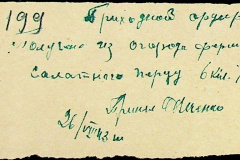 199 Приходной ордер
Получено из огорода ферми
Салатного перцу 6 кіл.
Принял
26/VIII 43